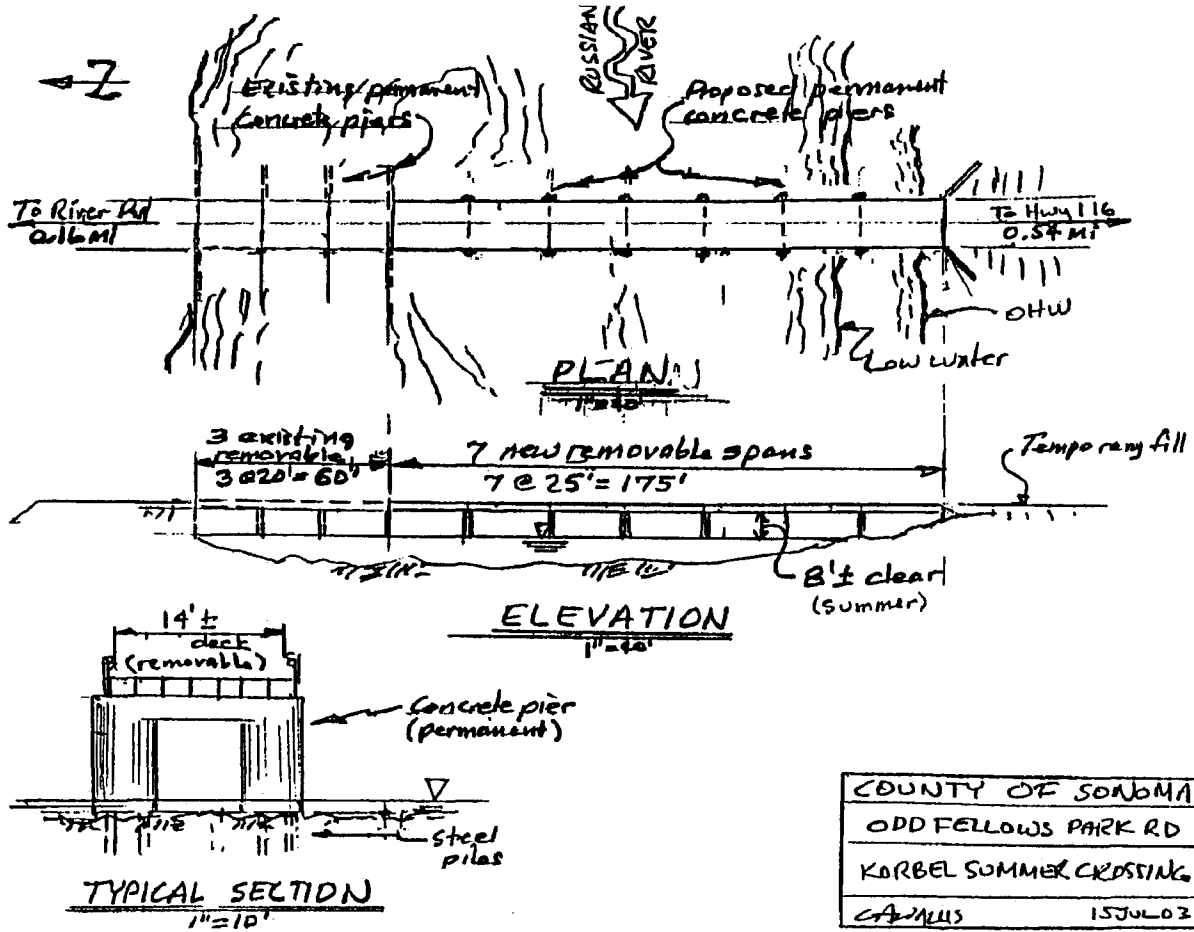 Z
RUSSIAN
RIVER
Existing permanent
concrete piers
Proposed permanent
concrete piers
To River Rd
0.16 MI
To Hwy 116
0.54 mi
OHW
Low water
PLAN
1"=40'
3 existing
removable
3 @ 20' = 60'
7 new removable spans
7 @ 25' = 175'
Temporary fill
8'± clear
(summer)
ELEVATION
1"=40'
14'±
deck
(removable)
Concrete pier
(permanent)
Steel
piles
TYPICAL SECTION
1"=10'
COUNTY OF SONOMA
ODD FELLOWS PARK RD
KORBEL SUMMER CROSSING
15JUL03